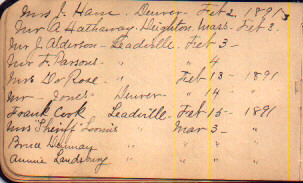 Mrs J. Hane - Denver - Feb 2, 1891
Mr A Hathaway - Deighton, Mass. Feb 3.
Mr J. Alderson - Leadville. Feb 3 -
Mr F. Parsons - " " 4
Mrs De Rose - " Feb 13 - 1891
Mr - Jones Denver " 14 "
Frank Cork Leadville. Feb 15 - 1891
Mrs "Sheriff" Loomis " Mar 3 - "
Bruce " " "
Annie Landsburg " " "